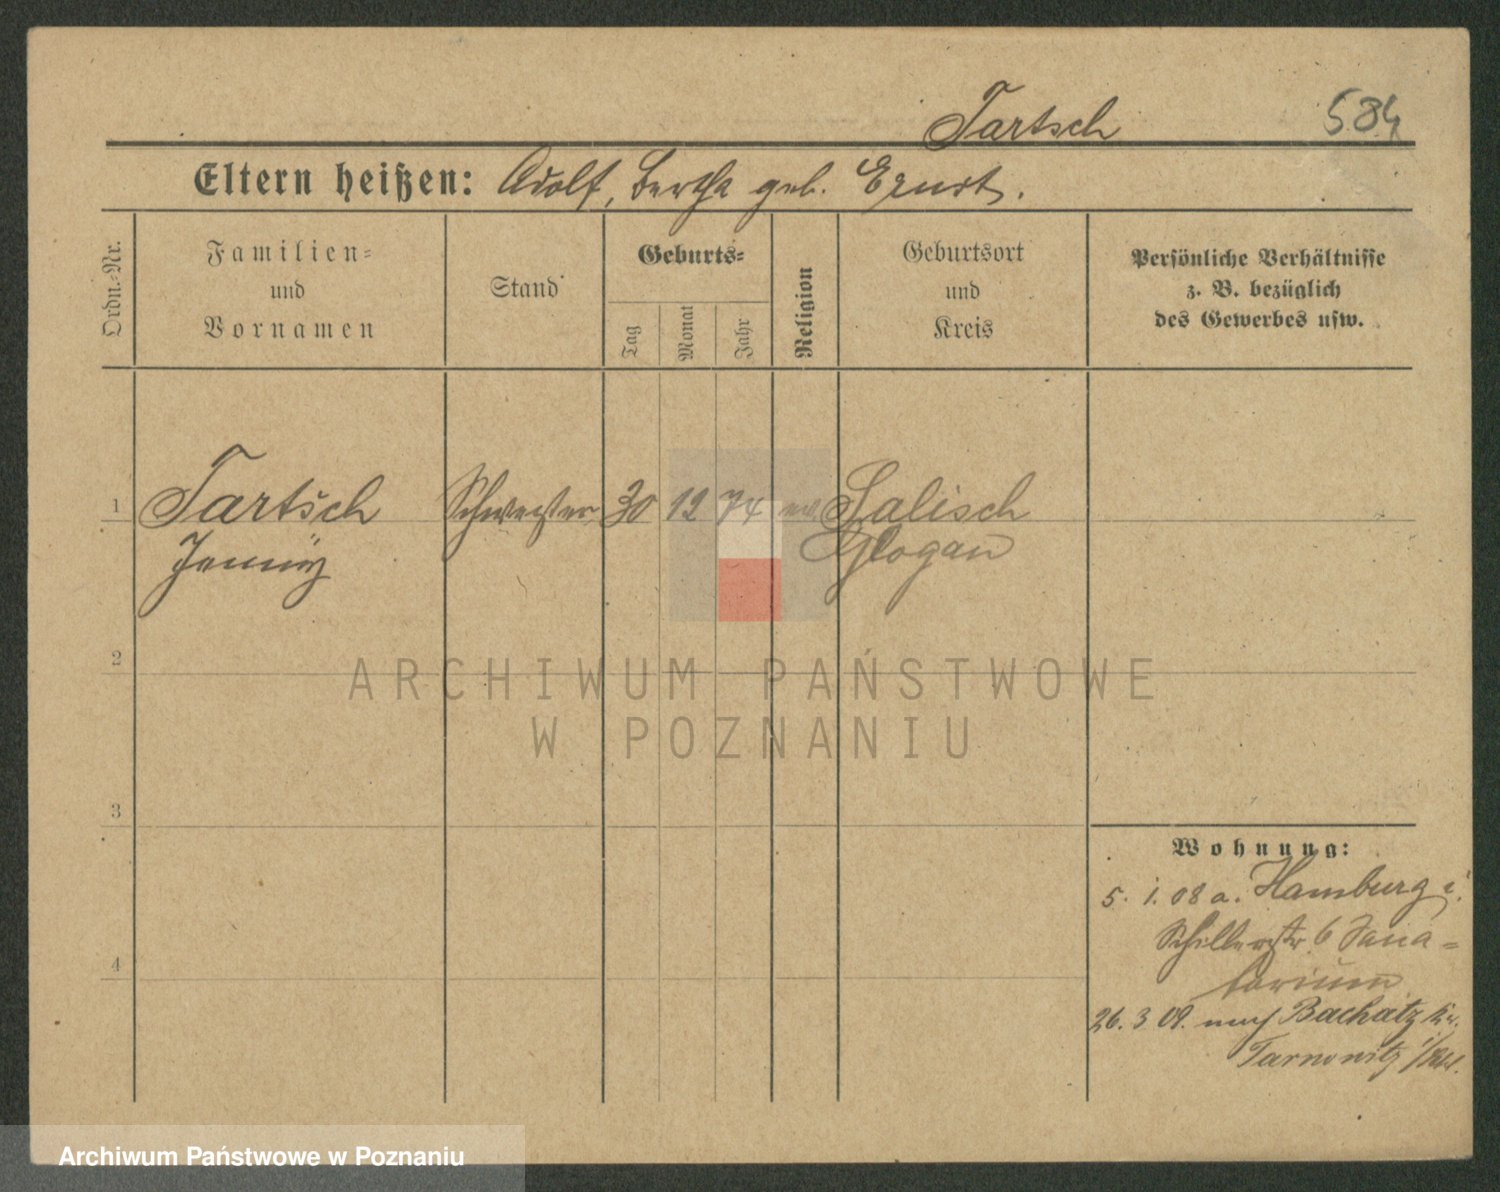 Tartsch 584
Eltern heißen: Adolf, Bertha geb. Ernst.
Ordn.-Nr.
Familien-
und
Vornamen
Stand
Geburts-
Tag
Monat
Jahr
Religion
Geburtsort
und
Kreis
Persönliche Verhältnisse
z. B. bezüglich
des Gewerbes usw.
1 Tartsch Schwester 30 12 74 ev Salisch
Jenny Glogau
2
3
4
Wohnung:
5. 1. 08 a. Hamburg i.
Schillerstr 6 Sana-
torium
26. 3 09. nach
Tarnowitz
ARCHIWUM PAŃSTWOWE
W POZNANIU
Archiwum Państwowe w Poznaniu